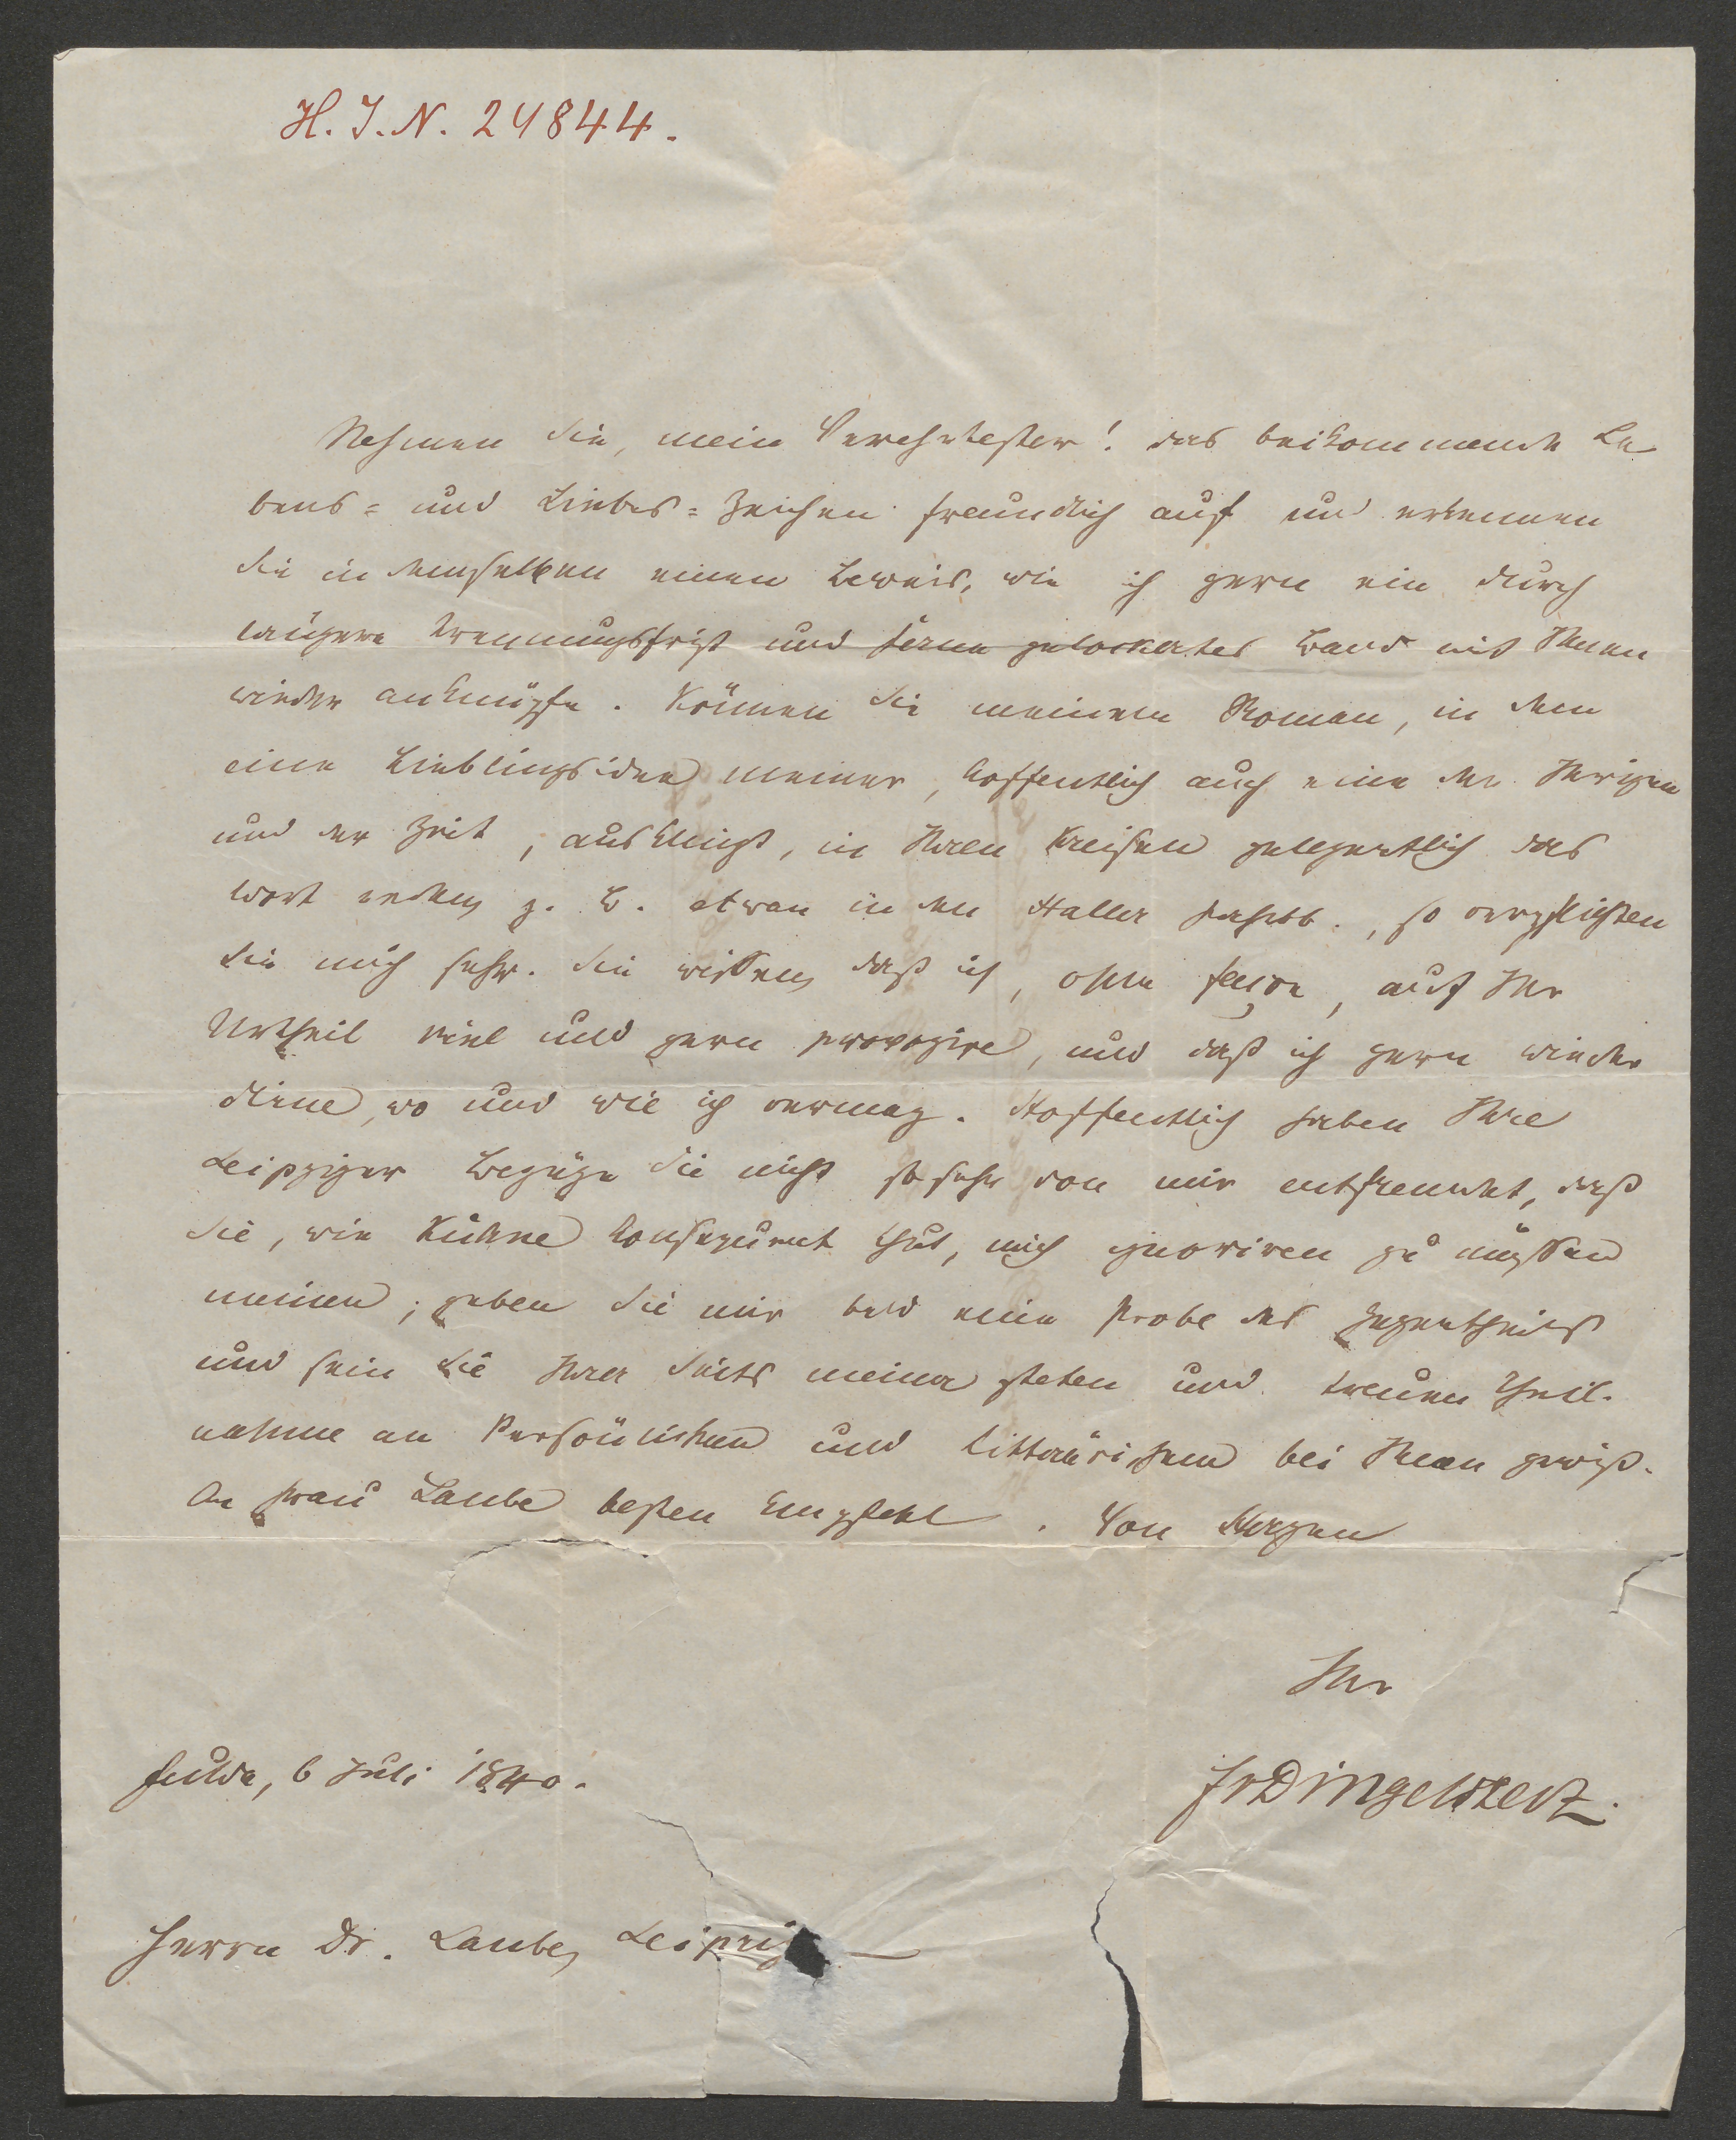 H. I. N. 24844.
Nehmen Sie, mein Verehrtester! das beikommende Le
bens= und Liebes=Zeichen freundlich auf und erkennen
Sie in demselben einen Beweis, wie ich gern ein durch
längere Trennungsfrist und Ferne gelockertes Band mit Ihnen
wieder anknüpfe. Können Sie meinem Roman, in dem
eine Lieblingsidee meiner, hoffentlich auch eine der Ihrigen
und der Zeit, ausklingt, in Ihren Kreisen gelegentlich das
Wort reden, z. B. etwan in den Haller Jahrbb., so verpflichten
Sie mich sehr. Sie wissen, daß ich, ohne façon, auf Ihr
Urtheil viel und gern provozire, und daß ich gern wieder
diene, wo und wie ich vermag. Hoffentlich haben Ihre
Leipziger Bezüge Sie nicht so sehr von mir entfremdet, daß
Sie, wie Kühne konsequent thut, mich ignoriren zu müssen
meinen; geben Sie mir bald eine Probe des Gegentheils
und sein Sie Ihrer Seits meiner steten und treuen Theil-
nahme an Persönlichem und Litterärischem bei Ihnen gewiß.
An Frau Laube besten Empfehl. Von Herzen
Ihr
FrDingelstedt.
Fulda, 6 Juli 1840.
Herrn Dr. Laube, Leipzig